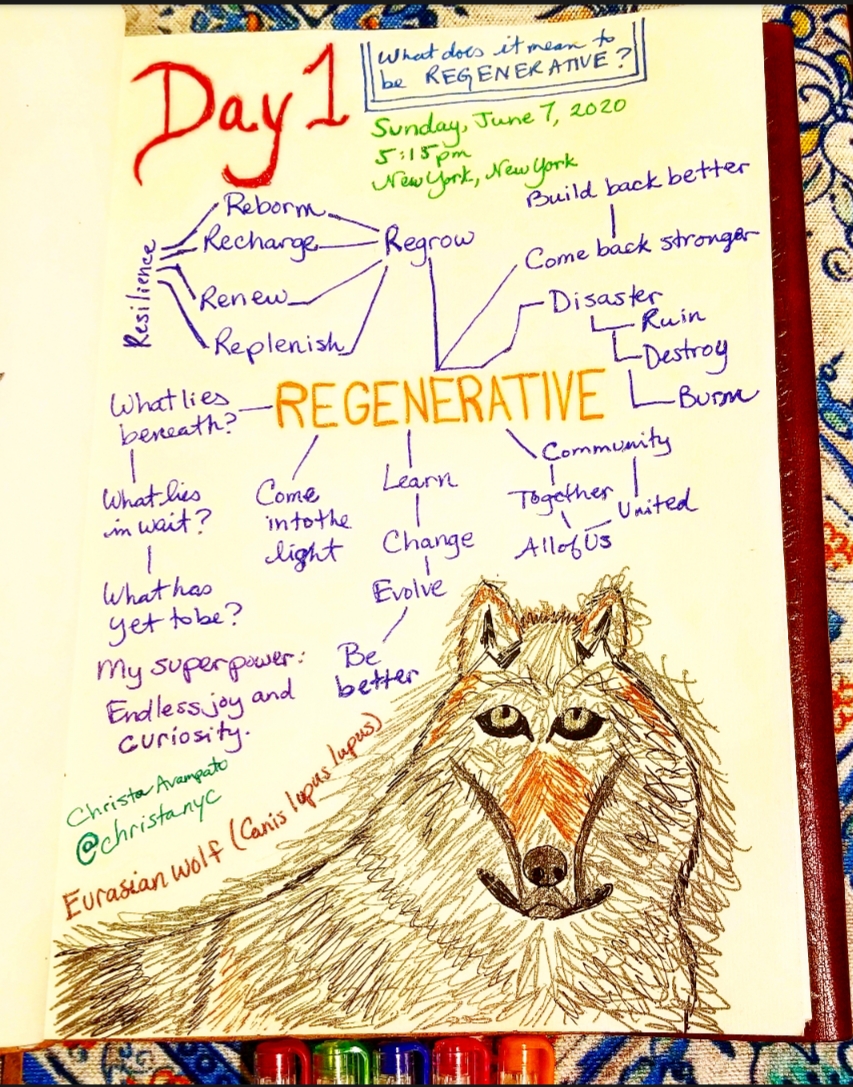 Day 1
What does it mean to
be REGENERATIVE?
Sunday, June 7, 2020
5:15pm
New York, New York
Build back better
Come back stronger
Reborn
Recharge
Regrow
Resilience
Renew
Replenish
Disaster
Ruin
Destroy
Burn
REGENERATIVE
What lies
beneath?
What lies
in wait?
What has
yet to be?
Come
into the
light
Learn
Change
Evolve
Be
better
Community
Together
United
All of Us
My superpower:
Endless joy and
curiosity.
Christa Avampato
@christanyc
Eurasian Wolf (Canis lupus lupus)